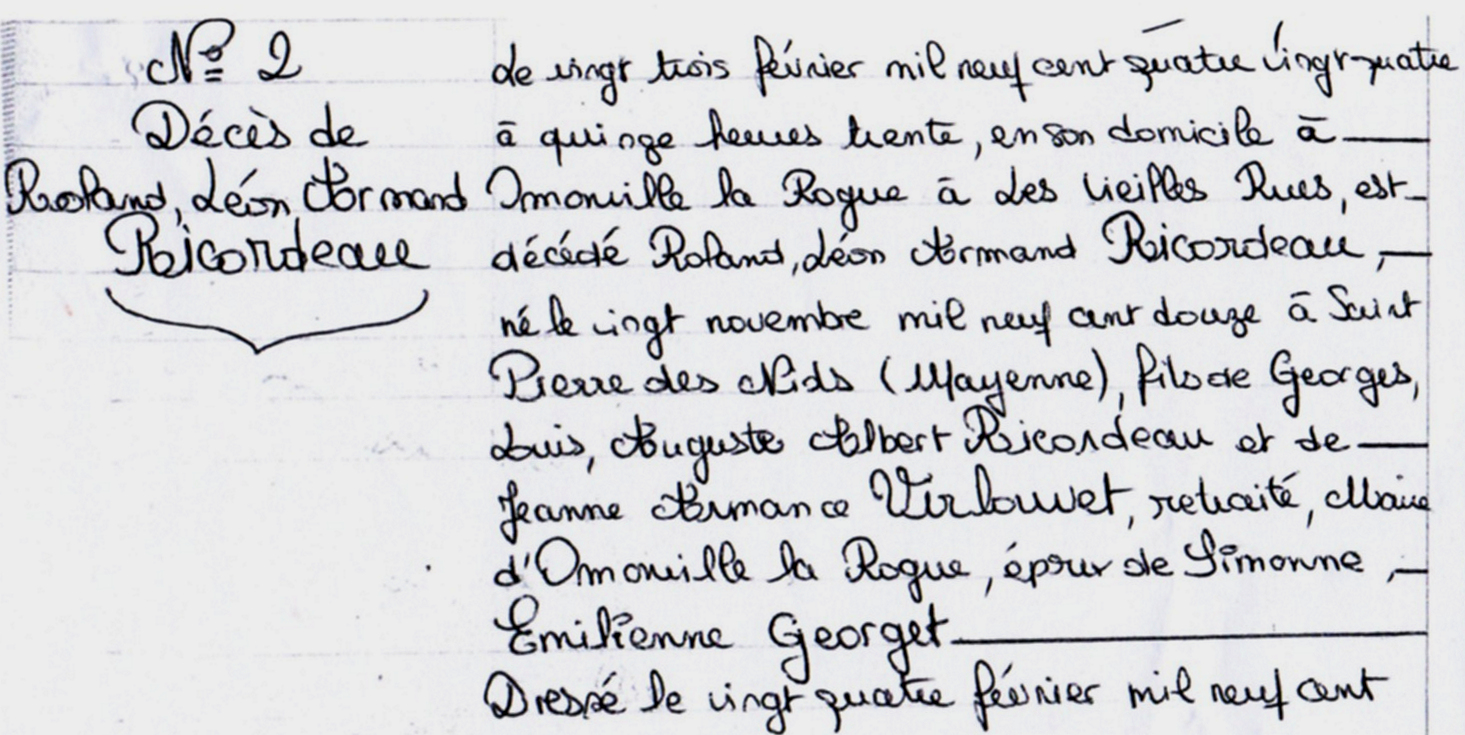 N° 2
Décès de
Roland, Léon Armand
Ricordeau
de vingt trois février mil neuf cent quatre vingt-quatre
à quinze heures trente, en son domicile à
Omonville la Rogue à Les Vieilles Rues, est
décédé Roland, Léon Armand Ricordeau,
né le vingt novembre mil neuf cent douze à Saint
Pierre des Nids (Mayenne), fils de Georges,
Louis, Auguste Albert Ricordeau et de
Jeanne Armance Virlouvet, retraité, Maire
d'Omonville la Rogue, époux de Simonne,
Emilienne Georget
Dressé le vingt quatre février mil neuf cent